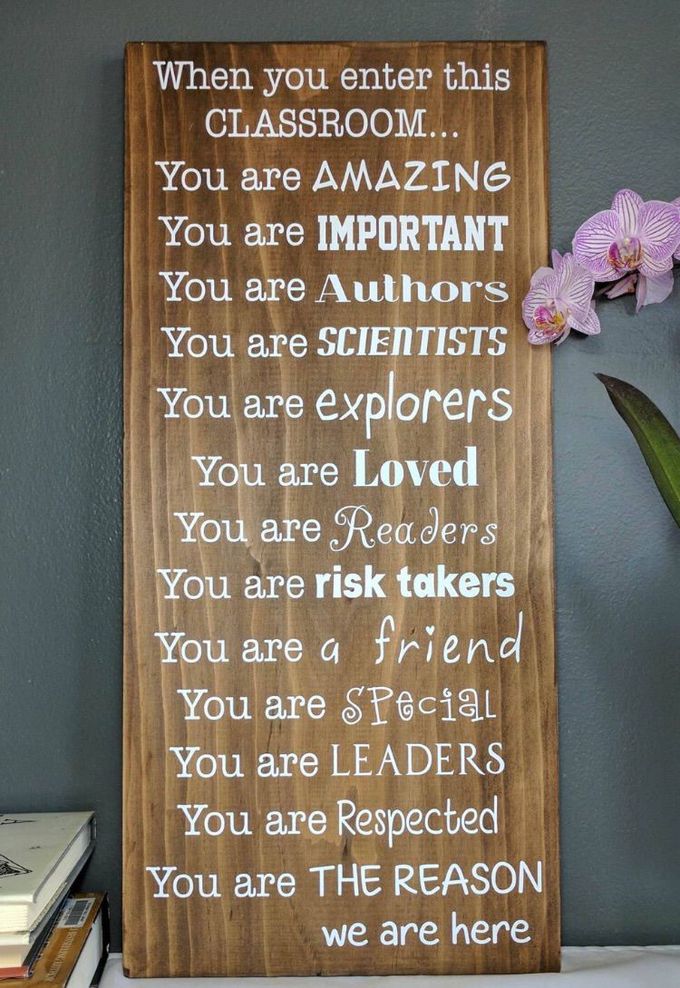 When you enter this
CLASSROOM...
You are AMAZING
You are IMPORTANT
You are Authors
You are SCIENTISTS
You are explorers
You are Loved
You are Readers
You are risk takers
You are a friend
You are SPecial
You are LEADERS
You are Respected
You are THE REASON
we are here